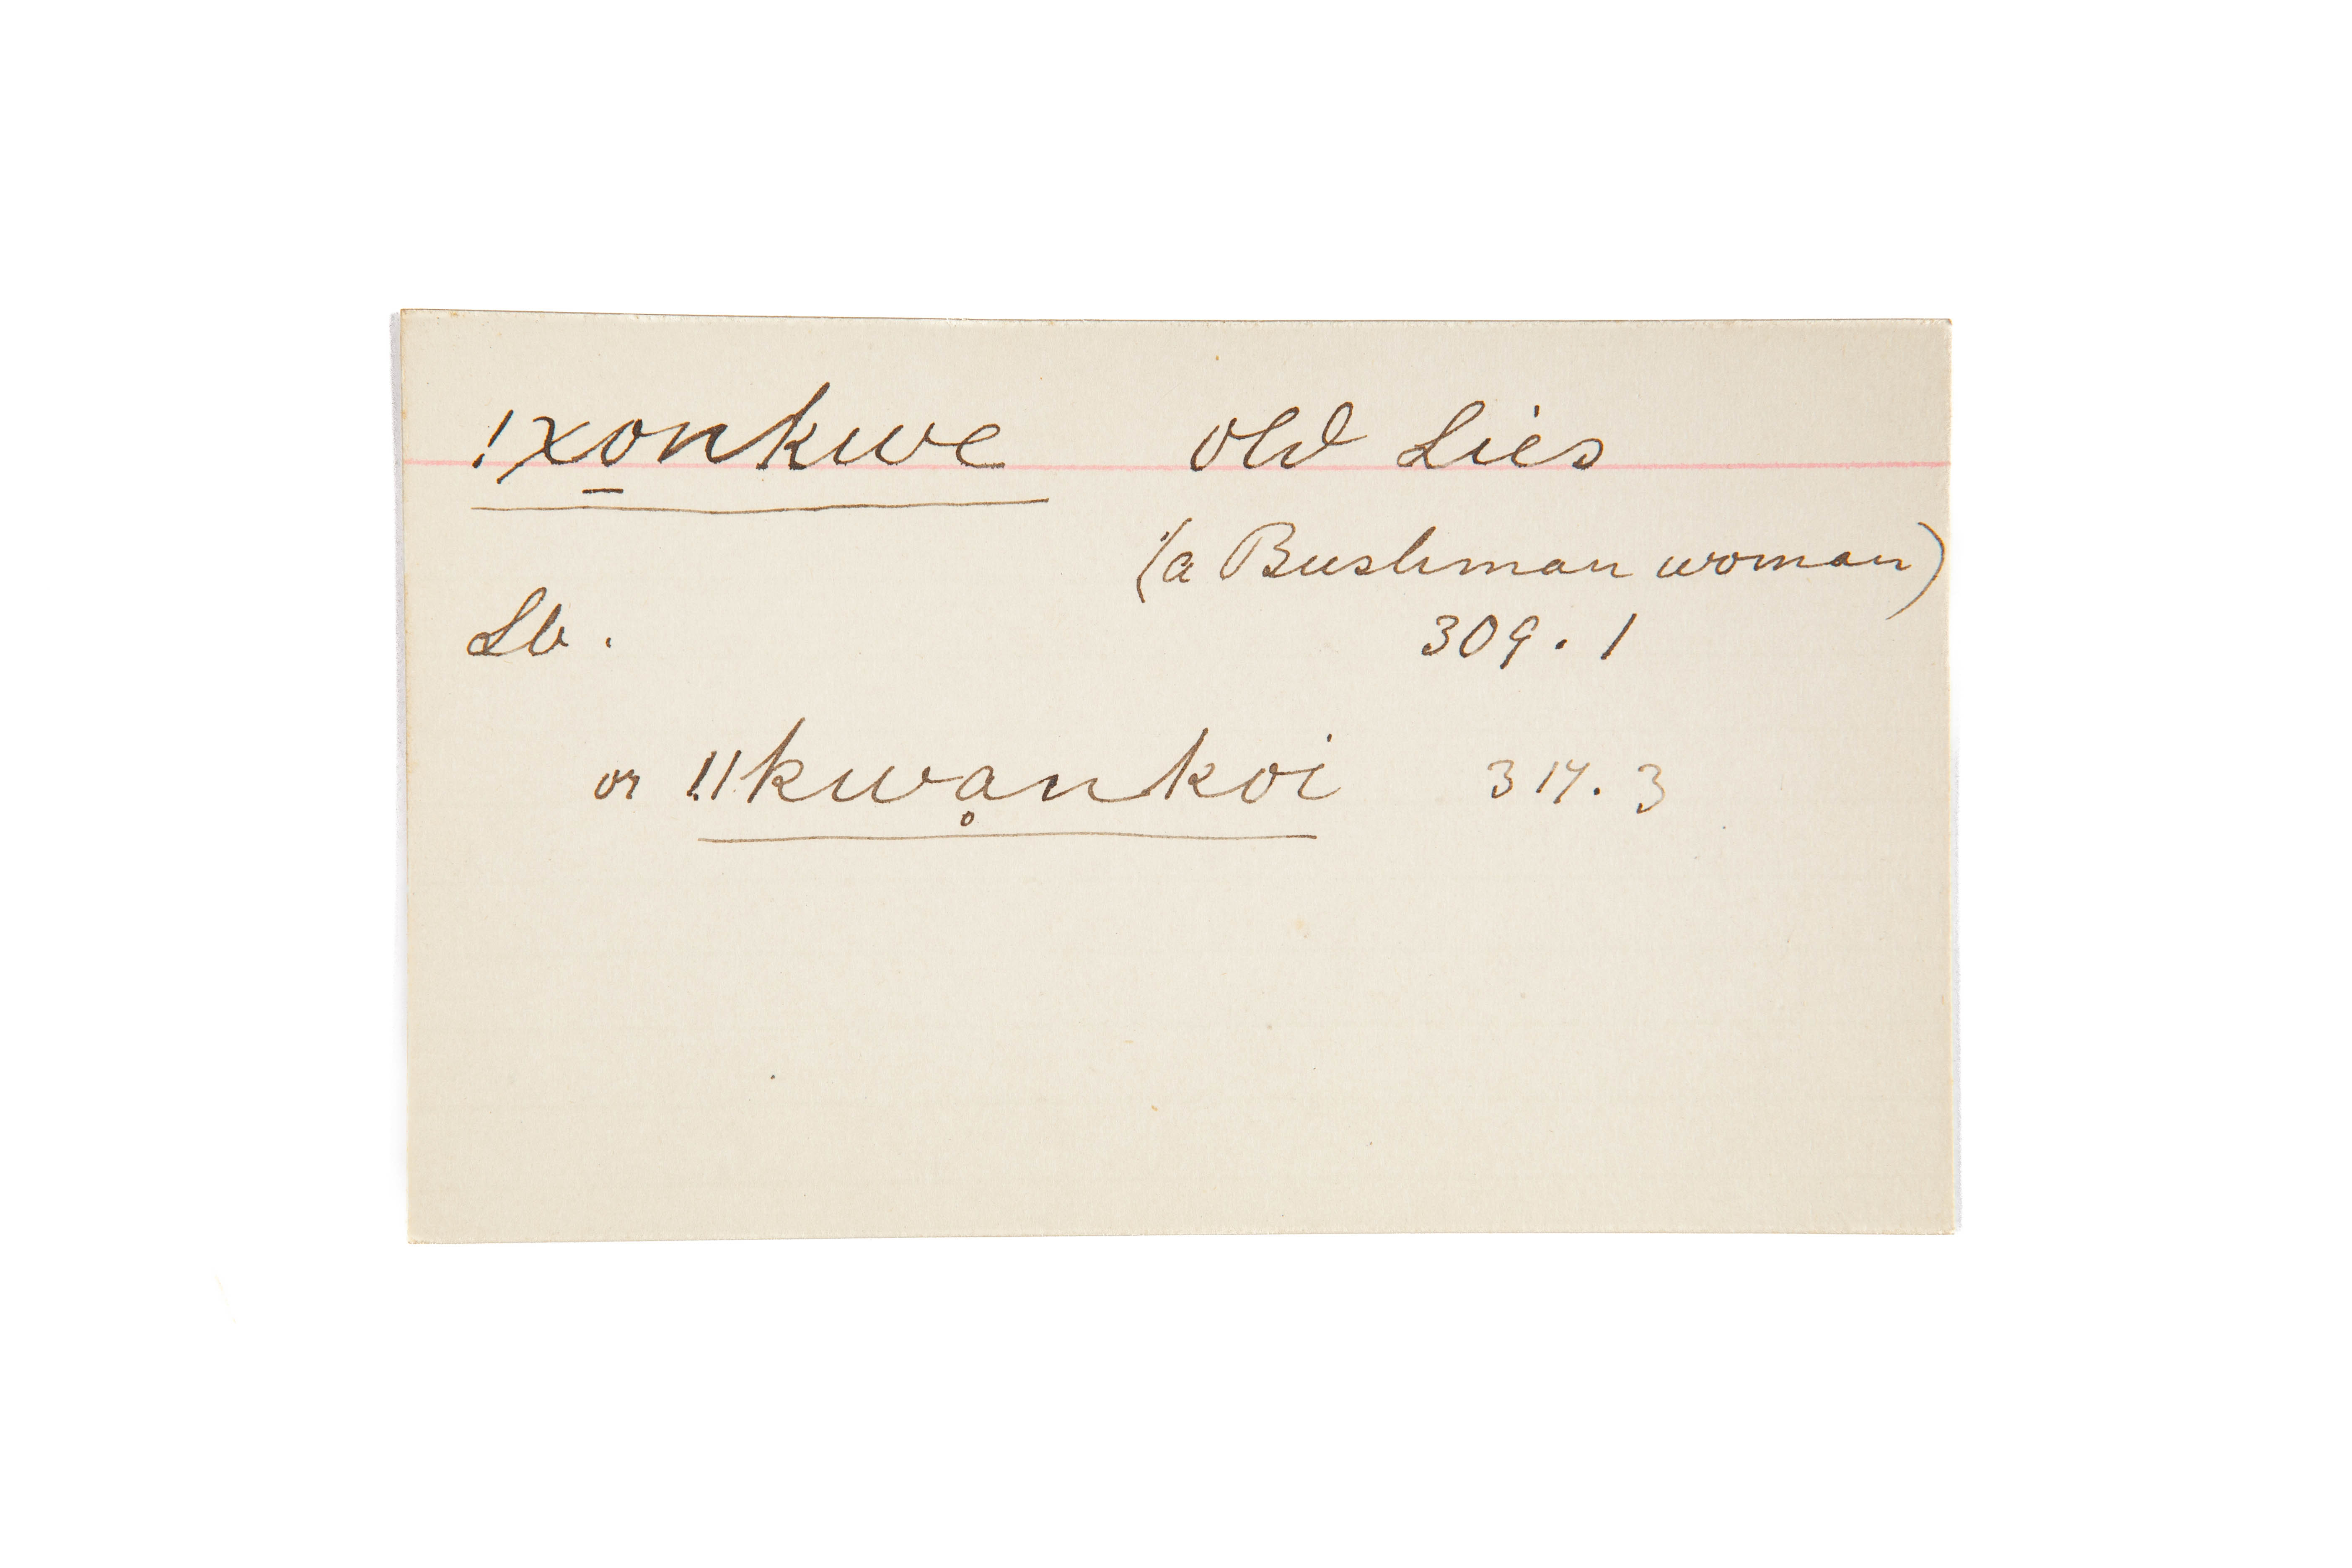 !xo̱nkwe Old Lies
(a Bushman woman)
Lb. 309.1
or !!kwḁnkoi 317.3